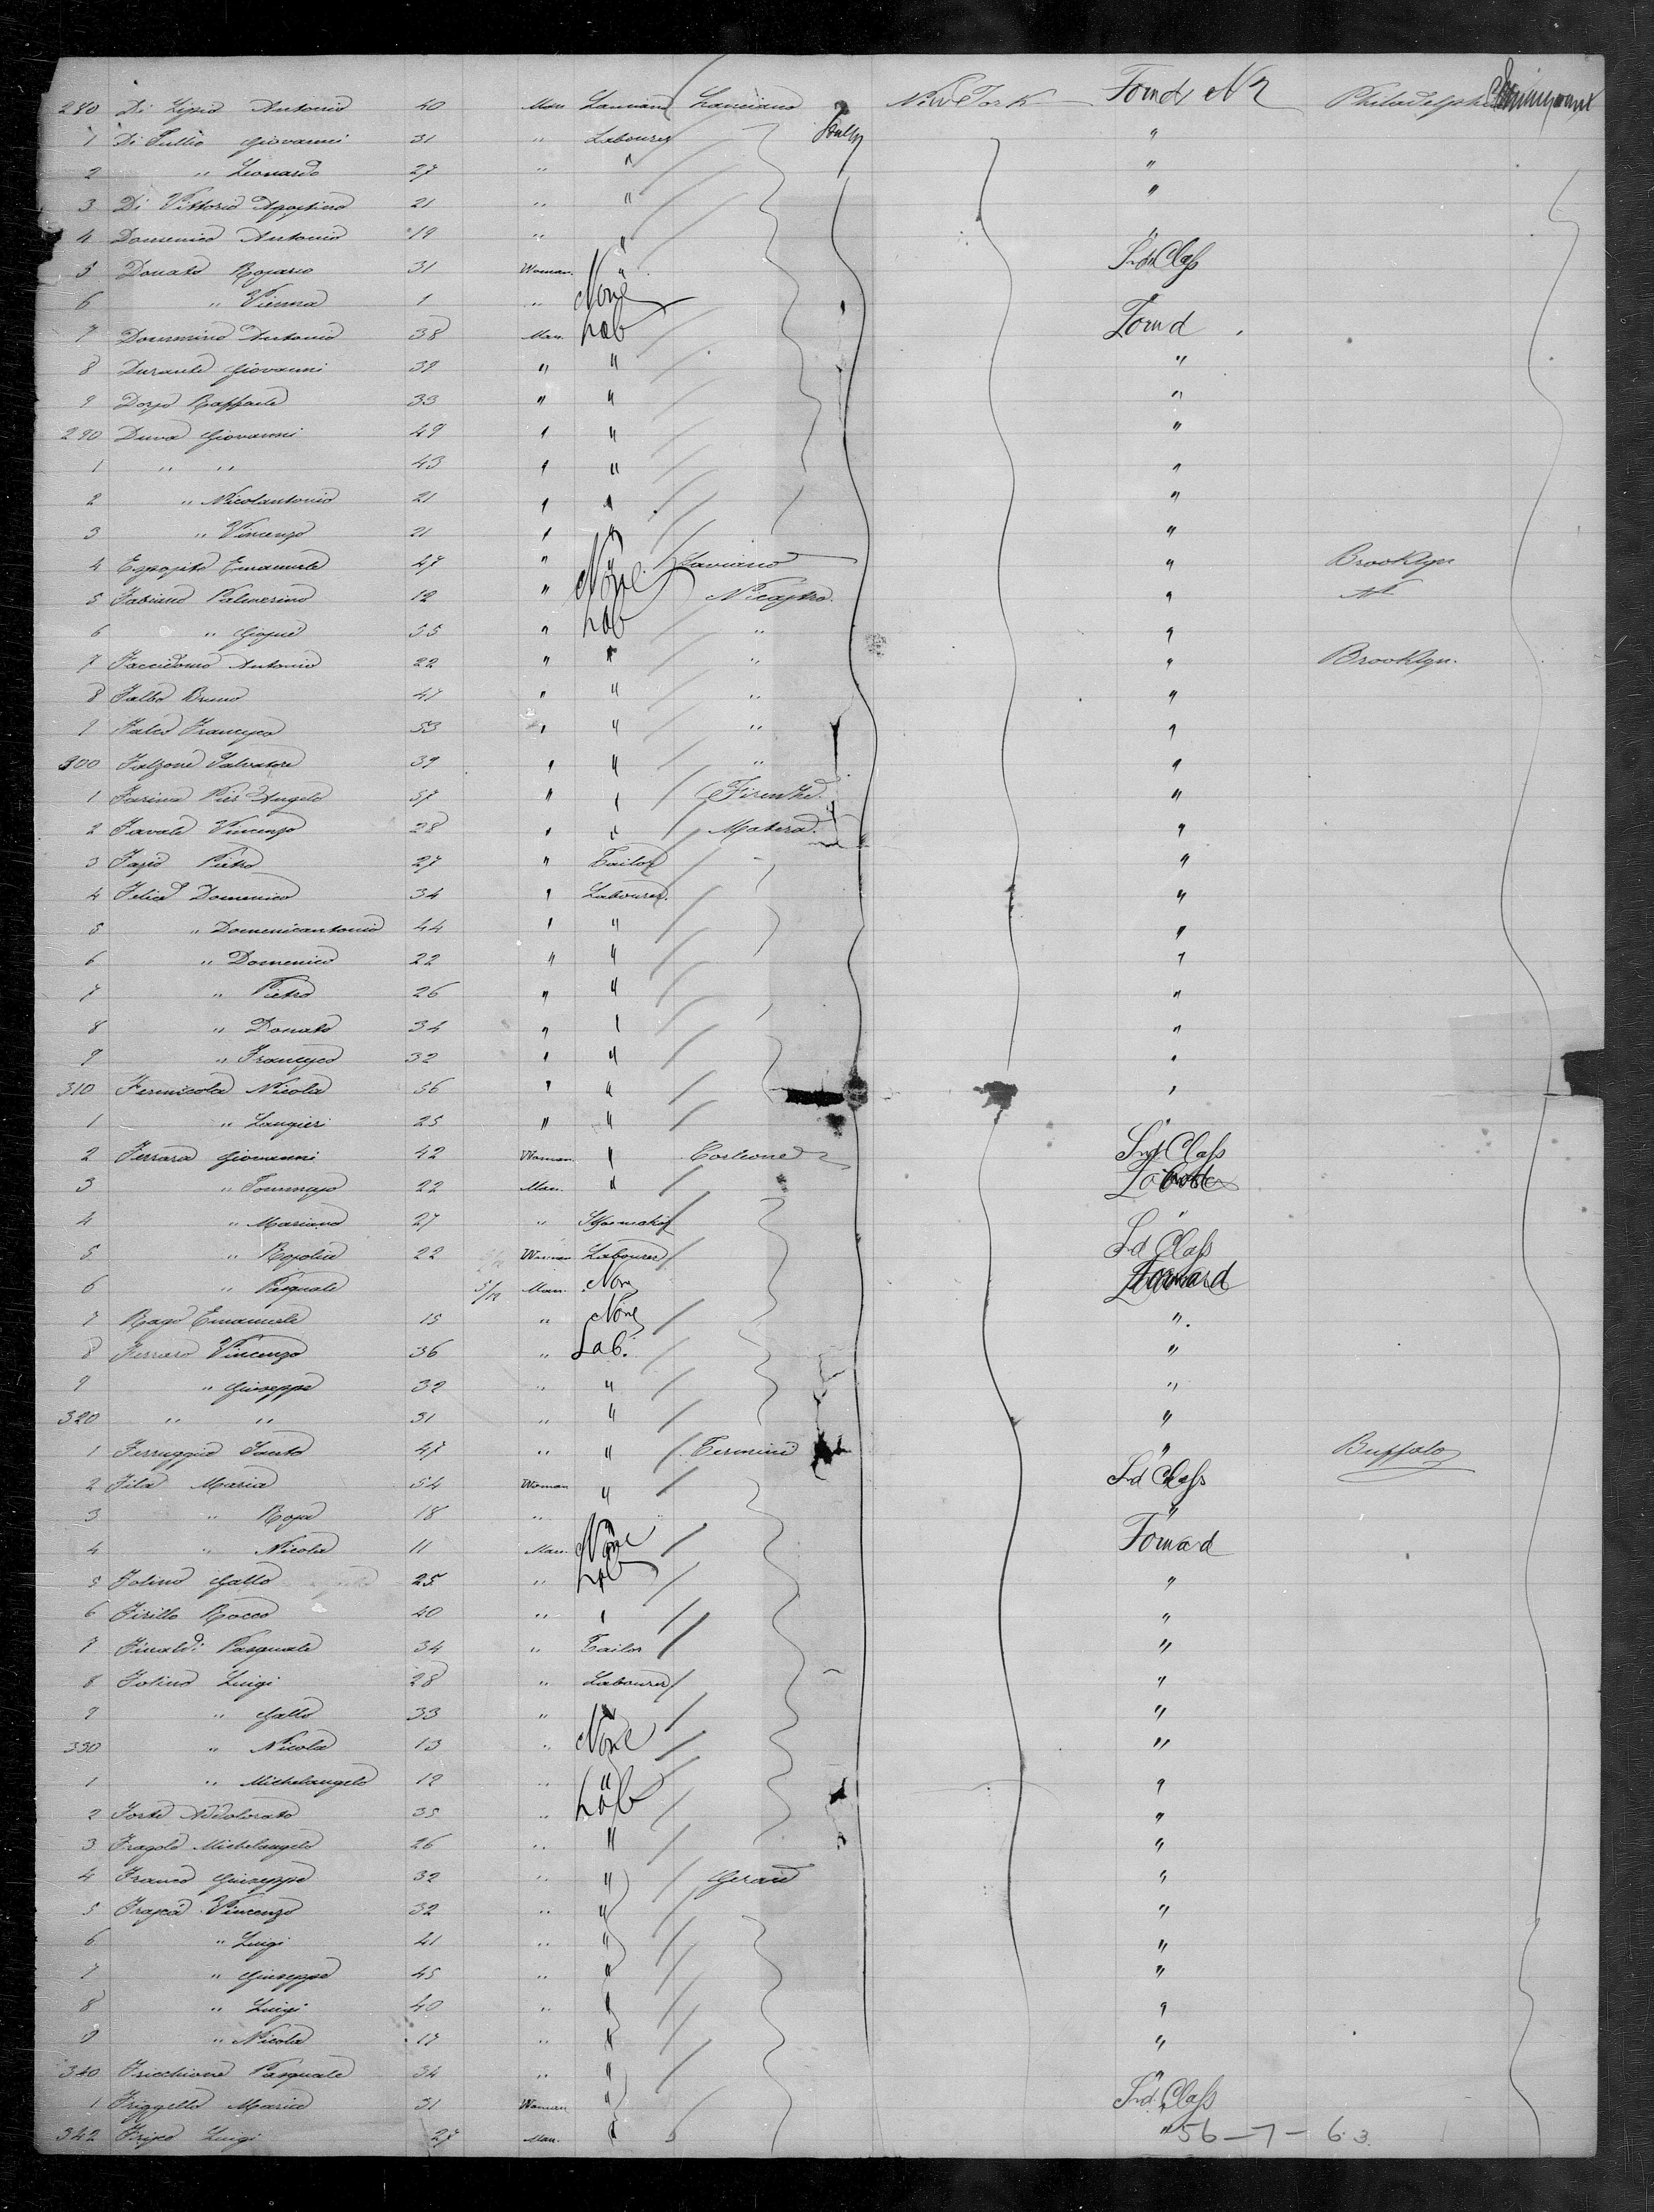 280 Antonio 40 Man Lanciano New York Forwd Philadelphia
1 Di Tullio Giovanni 31 " Labourer Italy "
2 " Leonardo 27 " " "
3 Di Vittorio Agostino 21 " " "
4 Domenico Antonio 19 " " "
5 Donato Rosario 31 Woman. " 2nd Class
6 " Vienna 1 " None "
7 Antonio 38 Man. Lab Forwd
8 Durante Giovanni 39 " " "
9 Raffaele 33 " " "
290 Duva Giovanni 49 " " "
1 " " 43 " " "
2 " Nicolantonio 21 " " "
3 " Vincenzo 21 " " "
4 Esposito Emanuele 47 " " Laviano " Brooklyn
5 Fabiano Palmerino 12 " None Nicastro. "
6 " Giosue 55 " Lab " "
7 Antonio 22 " " " " Brooklyn.
8 Falbo Bruno 41 " " " "
9 Falco Francesco 53 " " " "
300 Falzone Salvatore 39 " " " "
1 Farina Pier Angelo 57 " " Firenthe. "
2 Favale Vincenzo 28 " " Matera. "
3 Fasio Pietro 27 " Tailor "
4 Felice Domenico 34 " Labourer. "
5 " Domenicantonio 44 " " "
6 " Domenico 22 " " "
7 " Pietro 26 " " "
8 " Donato 34 " " "
9 " Francesco 32 " " "
310 Fernicola Nicola 56 " " "
1 " Langieri 25 " " "
2 Ferrara Giovanni 42 Woman. " Corleone 2nd Class
3 " Tommaso 22 Man. "
4 " Mariano 27 " Shoemaker "
5 " Rosolia 22 Woman Labourer 2nd Class
6 " Pasquale 5/12 Man. None Forward
7 Rago Emanuele 15 " None "
8 Ferraro Vincenzo 36 " Lab. "
9 " Giuseppe 32 " " "
320 " " 31 " " "
1 Ferruggia Santo 47 " " Termini " Buffalo
2 Fila Maria 54 Woman " 2nd Class
3 " Rosa 18 " " "
4 " Nicola 11 Man. None Forward
5 Folino Gallo 25 " Lab "
6 Firillo Rocco 40 " " "
7 Finaldi Pasquale 34 " Tailor "
8 Folino Luigi 28 " Labourer "
9 " Gallo 33 " " "
330 " Nicola 13 " None "
1 " Michelangelo 12 " " "
2 Forte Addolorato 35 " Lab "
3 Fragola Michelangelo 26 " " "
4 Franco Giuseppe 32 " " Gerace "
5 Frasca Vincenzo 32 " " "
6 " Luigi 41 " " "
7 " Giuseppe 45 " " "
8 " Luigi 40 " " "
9 " Nicola 17 " " "
340 Fricchione Pasquale 34 " " "
1 Frizzello Maria 31 Woman " 2nd Class
342 Luigi 27 Man. " " 56-7-63